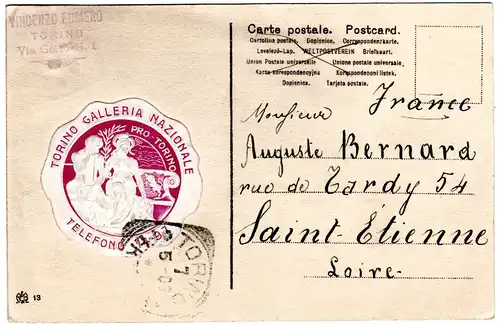 VINCENZO
TORINO
Carte postale. Postcard.
Cartolina postale. Dopisnice. Correspondenzkarte.
Levelező-Lap. WELTPOSTVEREIN Briefkaart.
Union Postale universelle Unione postale universale.
Karta korespondencyjna Korespondenční listek.
Dopisnica. Tarjeta postal.
France
Monsieur
Auguste Bernard
rue de Tardy 54
Saint-Étienne
Loire
TORINO GALLERIA NAZIONALE
PRO-TORINO
TELEFONO
TORINO
7
5-0
13